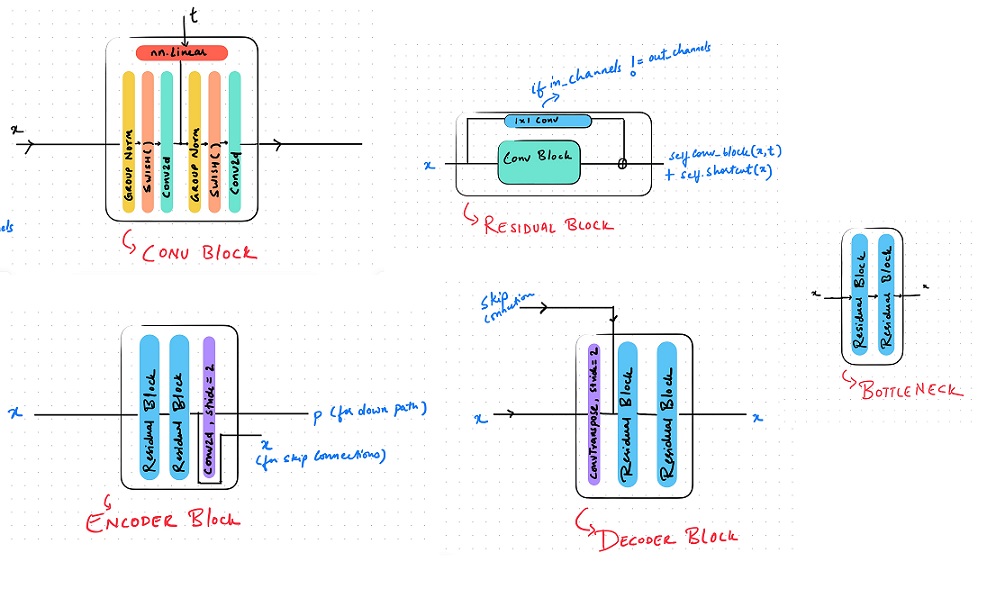 t
nn.Linear
x
GROUP NORM
SWISH()
Conv2d
GROUP NORM
SWISH()
Conv2d
CONV BLOCK
if in_channels != out_channels
1x1 Conv
x
Conv Block
self.conv_block(x,t)
+ self.shortcut(x)
RESIDUAL BLOCK
x
Residual Block
Residual Block
x
BOTTLENECK
x
Residual Block
Residual Block
Conv2d, stride = 2
p (for down path)
x
(for skip connections)
ENCODER BLOCK
skip
connection
x
ConvTranspose, stride = 2
Residual Block
Residual Block
x
DECODER BLOCK